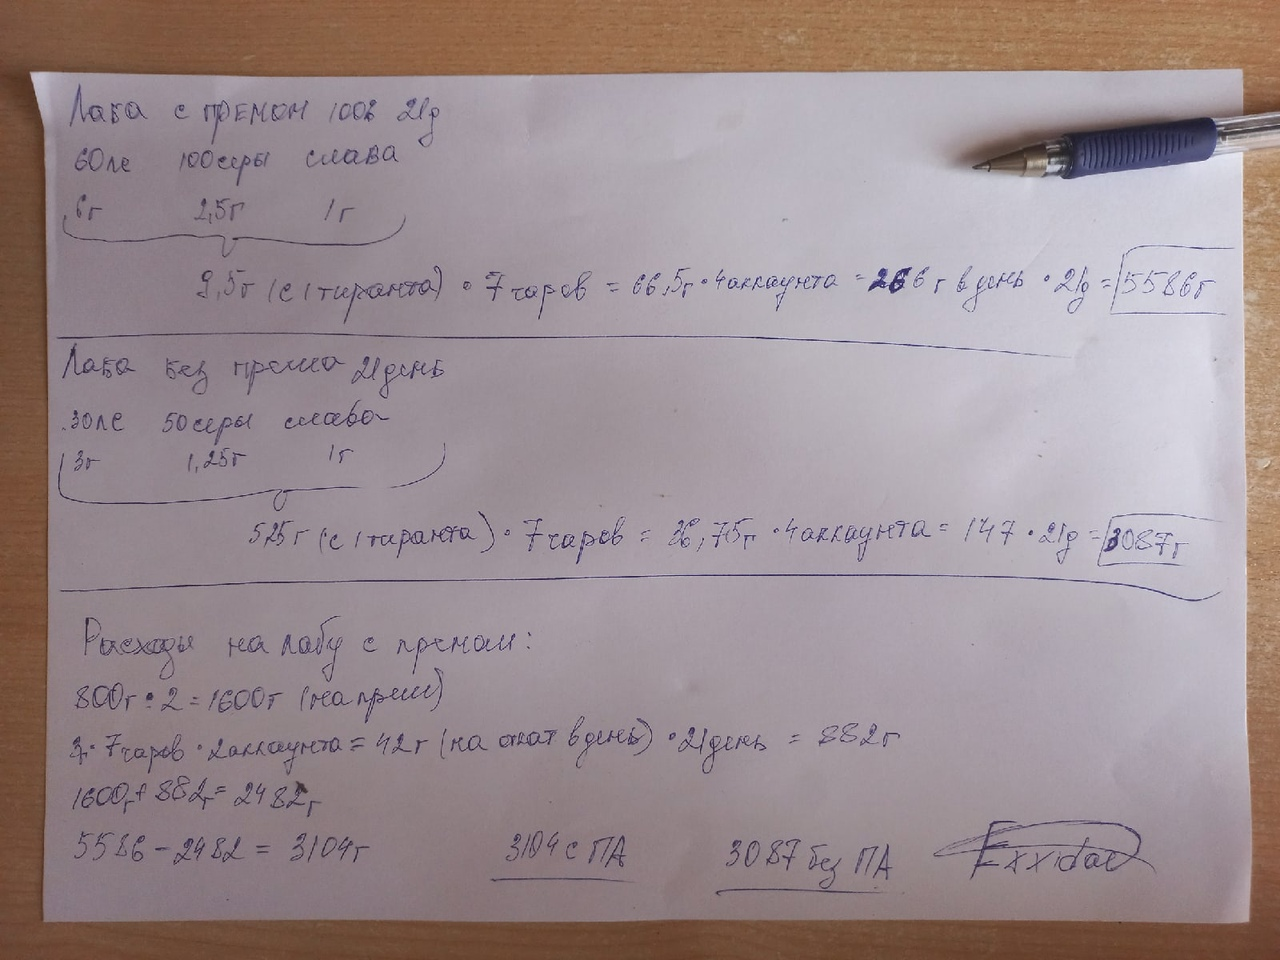 Лаба с премом 100% 21д
60ле 100серы слава
6г 2,5г 1г
9,5г (с 1 тиранта) · 7 чаров = 66,5г · 4 аккаунта = 266 г в день · 21д = 5586г
Лаба без према 21 день
30ле 50серы слава
3г 1,25г 1г
5,25г (с 1 тиранта) · 7 чаров = 36,75г · 4 аккаунта = 147 · 21д = 3087г
Расходы на лабу с премом:
800г · 2 = 1600г (на прем)
3 · 7 чаров · 2 аккаунта = 42 г (на откат в день) · 21 день = 882г
1600г + 882г = 2482г
5586 - 2482 = 3104г 3104 с ПА 3087 без ПА Exxidae